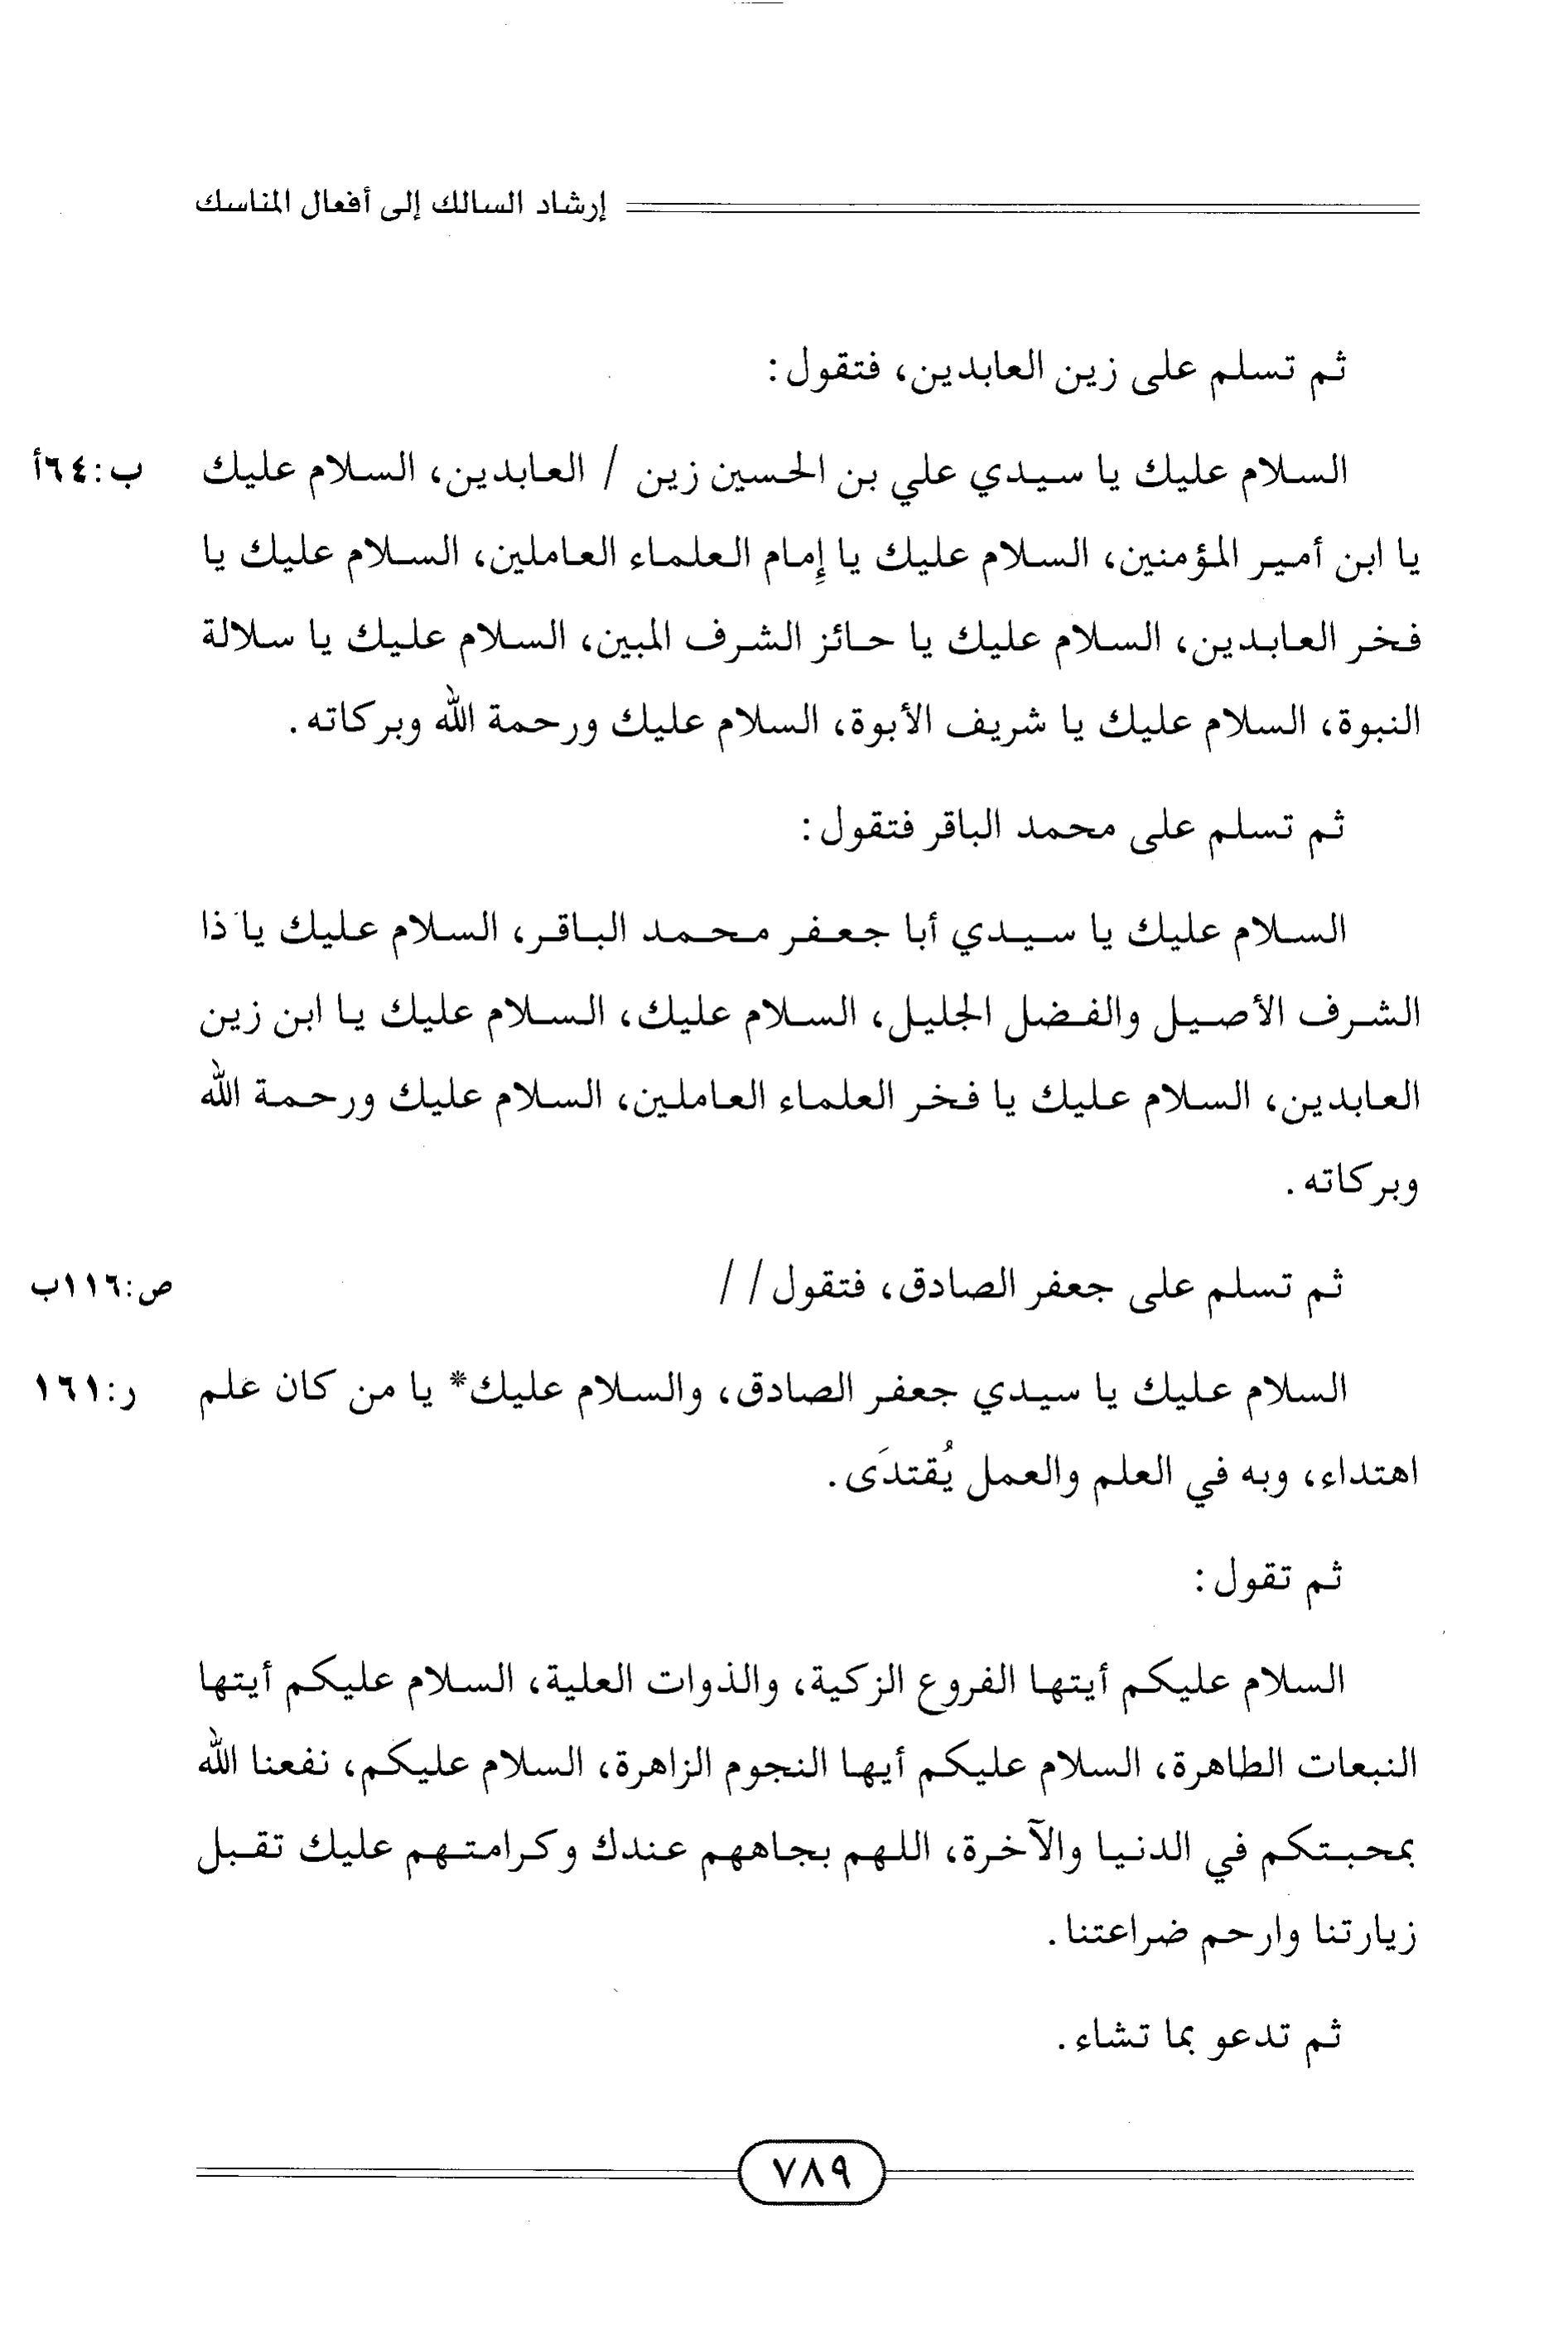 إرشاد السالك إلى أفعال المناسك
ثم تسلم على زين العابدين، فتقول:
السلام عليك يا سيدي علي بن الحسين زين / العابدين، السلام عليك ب:٦٤أ
يا ابن أمير المؤمنين، السلام عليك يا إِمام العلماء العاملين، السلام عليك يا
فخر العابدين، السلام عليك يا حائز الشرف المبين، السلام عليك يا سلالة
النبوة، السلام عليك يا شريف الأبوة، السلام عليك ورحمة الله وبركاته.
ثم تسلم على محمد الباقر فتقول:
السلام عليك يا سيدي أبا جعفر محمد الباقر، السلام عليك يا ذا
الشرف الأصيل والفضل الجليل، السلام عليك، السلام عليك يا ابن زين
العابدين، السلام عليك يا فخر العلماء العاملين، السلام عليك ورحمة الله
وبركاته.
ثم تسلم على جعفر الصادق، فتقول// ص:١١٦ب
السلام عليك يا سيدي جعفر الصادق، والسلام عليك* يا من كان علم ر:١٦١
اهتداء، وبه في العلم والعمل يُقتدَى.
ثم تقول:
السلام عليكم أيتها الفروع الزكية، والذوات العلية، السلام عليكم أيتها
النبعات الطاهرة، السلام عليكم أيها النجوم الزاهرة، السلام عليكم، نفعنا الله
بمحبتكم في الدنيا والآخرة، اللهم بجاههم عندك وكرامتهم عليك تقبل
زيارتنا وارحم ضراعتنا.
ثم تدعو بما تشاء.
٧٨٩